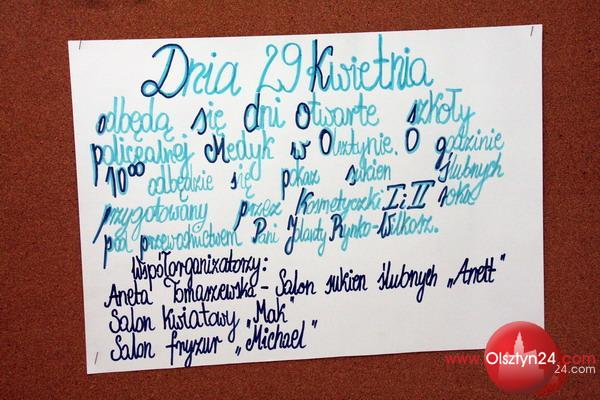 Dnia 29 Kwietnia
odbędą się dni otwarte szkoły
policealnej Medyk w Olsztynie. O godzinie
10⁰⁰ odbędzie się pokaz sukien ślubnych
przygotowany przez Kosmetyczki I i II roku
pod przewodnictwem Pani Jolanty Rynko-Wilkosz.
Współorganizatorzy:
Aneta Tomaszewska - Salon sukien ślubnych „Anett"
Salon Kwiatowy „Mak"
Salon fryzur „Michael"
www.Olsztyn24.com
24.com